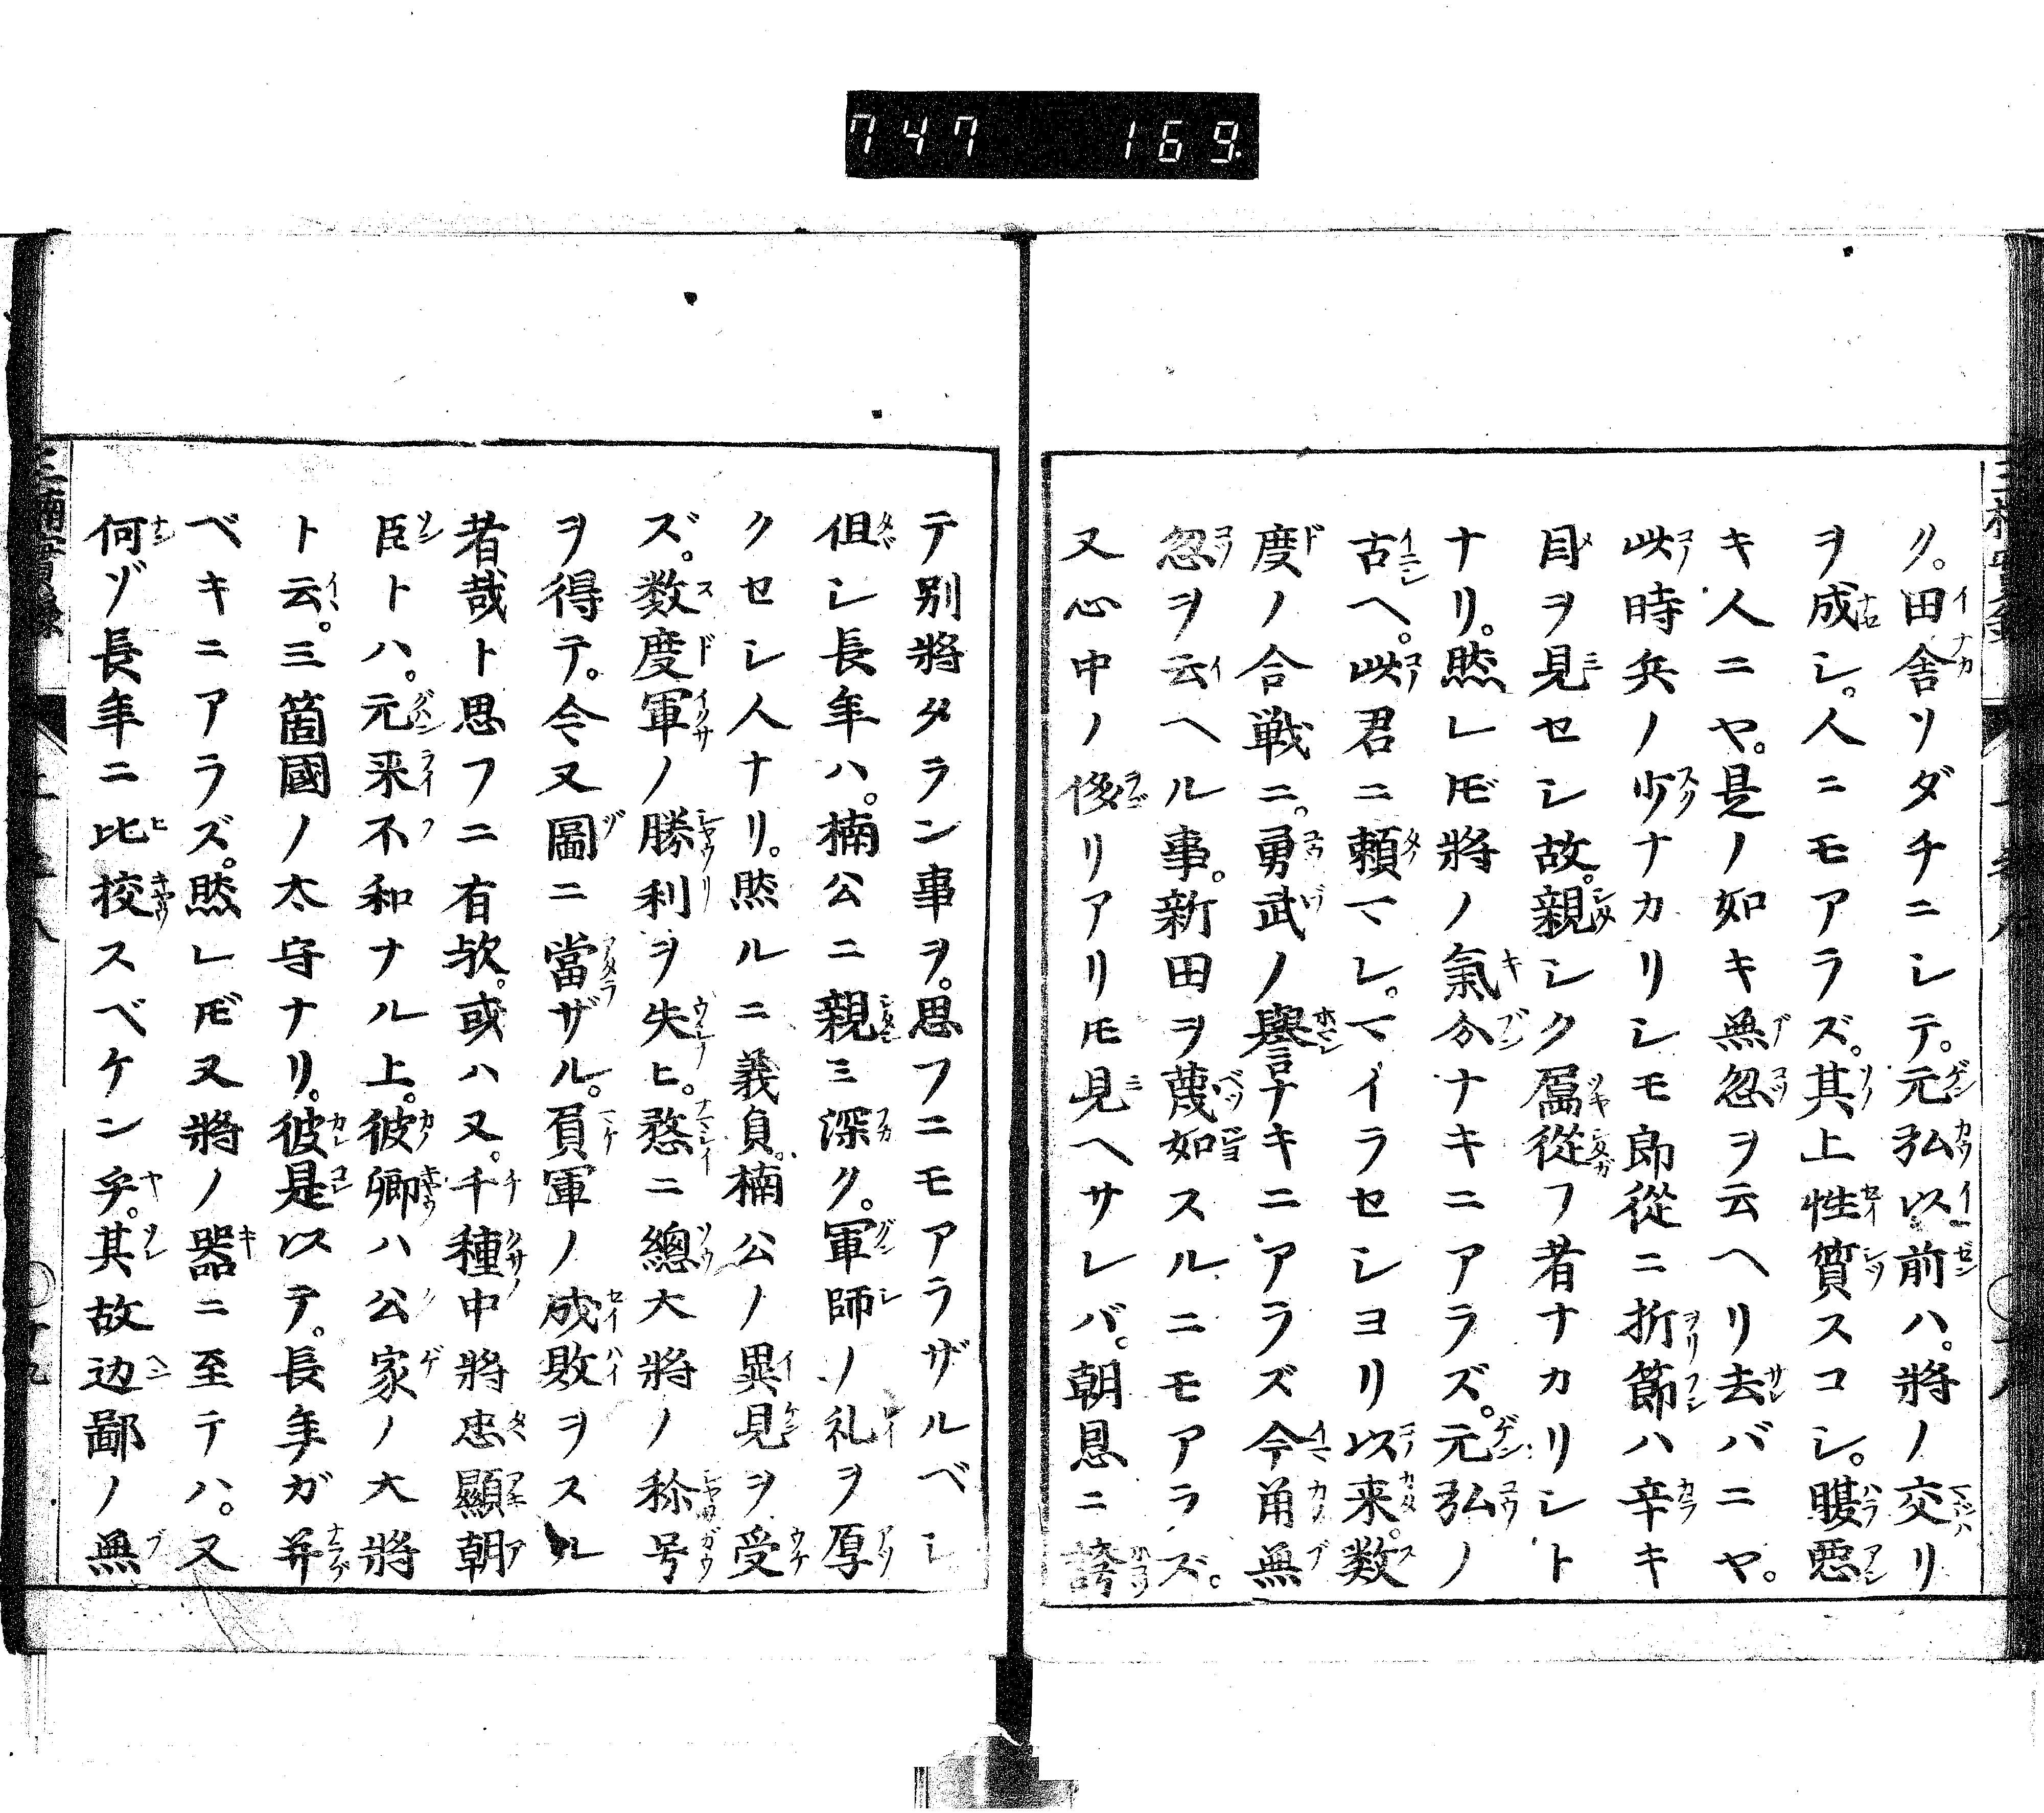 747 169
ク。田舎ソダチニシテ。元弘以前ハ。將ノ交リ
ヲ成シ。人ニモアラズ。其上性質スコシ。腹悪
キ人ニヤ。是ノ如キ無忽ヲ云ヘリ去バニヤ。
此時兵ノ少ナカリシモ郎從ニ折節ハ辛キ
目ヲ見セシ故。親シク属從フ者ナカリシト
ナリ。然レ𪜈將ノ氣分ナキニアラズ。元弘ノ
古ヘ。此君ニ頼マレ。マイラセシヨリ以来。数
度ノ合戦ニ。勇武ノ譽ナキニアラズ今甭無
忽ヲ云ヘル事。新田ヲ蔑如スルニモアラズ。
又心中ノ侫リアリ𪜈見ヘサレバ。朝恩ニ誇
テ別將タラン事ヲ。思フニモアラザルベシ
但シ長年ハ。楠公ニ親ミ深ク。軍師ノ礼ヲ厚
クセシ人ナリ。然ルニ義貞。楠公ノ異見ヲ受
ズ。数度軍ノ勝利ヲ失ヒ。憖ニ總大將ノ称号
ヲ得テ。今又圖ニ當ザル。負軍ノ成敗ヲスル
者哉ト思フニ有欤。或ハ又。千種中將忠顯朝
臣トハ。元来不和ナル上。彼卿ハ公家ノ大將
ト云。三箇國ノ太守ナリ。彼是以テ。長年ガ并
ベキニアラズ。然レ𪜈又將ノ器ニ至テハ。又
何ゾ長年ニ比校スベケンヤ。其故辺鄙ノ無